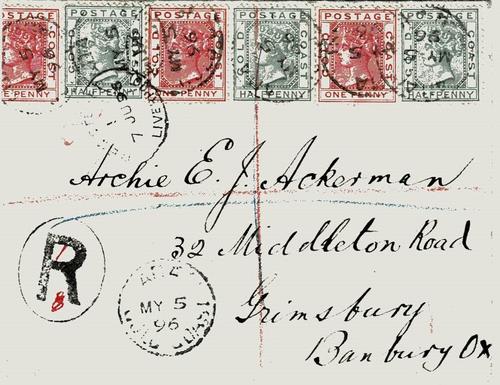 POSTAGE POSTAGE POSTAGE POSTAGE POSTAGE POSTAGE
COAST COAST GOLD COAST GOLD COAST COAST
ONE PENNY HALFPENNY ONE PENNY HALFPENNY ONE PENNY HALFPENNY
LIVERPOOL
7 JU 96
Archie E. J. Ackerman
32 Middleton Road
Grimsbury
Banbury Ox
R
MY 5
96